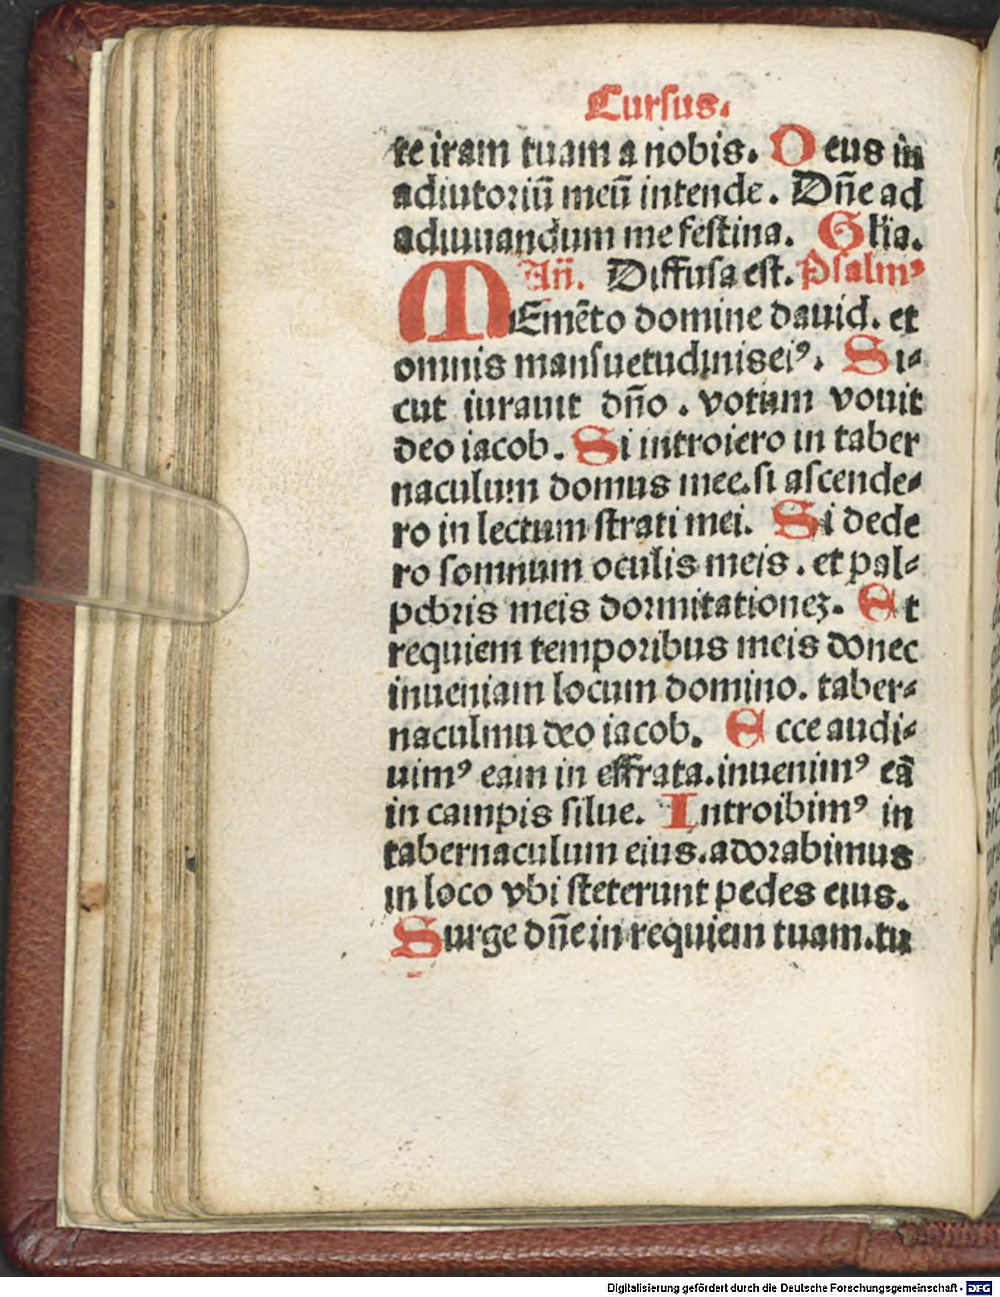 Cursus.
te iram tuam a nobis. Deus in
adiutoriū meū intende. Dn̄e ad
adiuuandum me festina. Gl̄ia.
An̄. Diffusa est. Psalmꝰ
MEmēto domine dauid. et
omnis mansuetudinis eiꝰ. Si⸗
cut iurauit dn̄o . votum vouit
deo iacob. Si introiero in taber
naculum domus mee. si ascende⸗
ro in lectum strati mei. Si dede
ro somnum oculis meis . et pal⸗
pebris meis dormitationeꝫ. Et
requiem temporibus meis donec
inueniam locum domino. taber⸗
naculum deo iacob. Ecce audi⸗
uimꝰ eam in effrata. inuenimꝰ eā
in campis silue. Introibimꝰ in
tabernaculum eius. adorabimus
in loco vbi steterunt pedes eius.
Surge dn̄e in requiem tuam. tu
Digitalisierung gefördert durch die Deutsche Forschungsgemeinschaft - DFG